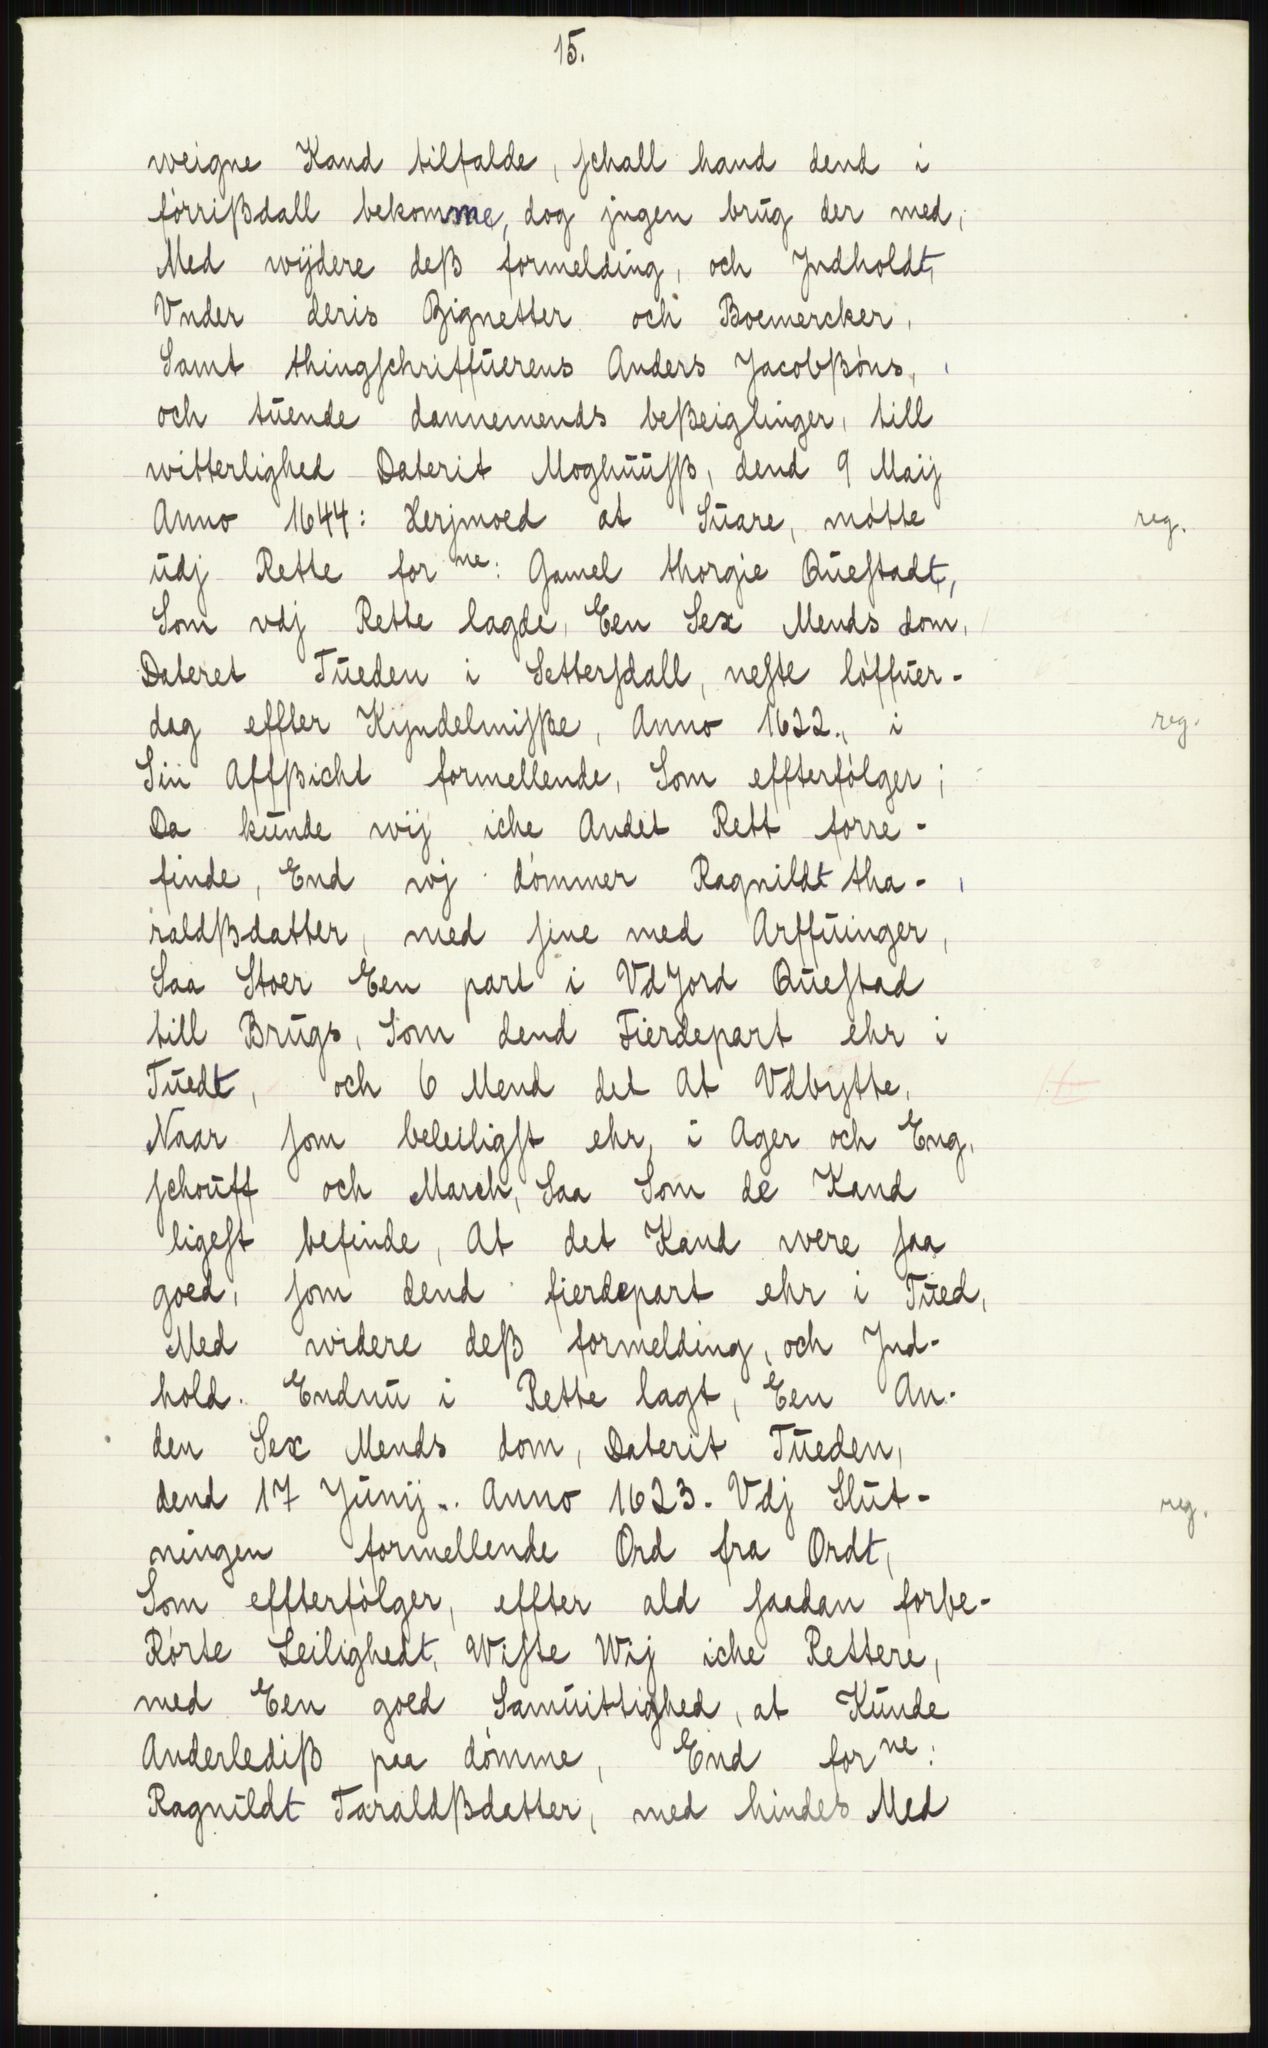 15.
weigne Kand tilfalde, schall hand dend i
förrißdall bekomme, dog jngen brug der med,
Med wijdere deß formelding, och Jndholdt,
Vnder deris Zignetter och Boemercker,
Samt thingschriffuerens Anders Jacobßøns,
och tuende dannemends beßeiglinger, till
witterlighed Daterit Moghuusß, dend 9 Maij
Anno 1644: Herjmoed at Suare, møtte
reg.
udj Rette for ne: Gamel thorgie Questadt,
Som vdj Rette lagde, Een Sex Mends dom,
Dateret Tueden i Settersdall, neste løffuer-
dag effter Kyndelmisße, Anno 1622., i
reg.
Sin Affßicht formellende, Som effterfølger;
Da kunde wij iche Andet Rett forre-
finde, End wj dømmer Ragnildt tha-
raldßdatter, med sine med Arffuinger,
Saa Stoer Een part i VdJord Questad
till Brugs, Som dend Fierdepart ehr i
Tuedt, och 6 Mend det At Vdbytte,
Naar som beleiligst ehr, i Ager och Eng,
schouff och March, Saa Som de Kand
ligest befinde, At det Kand were saa
goed, som dend fierdepart ehr i Tued,
Med widere deß formelding, och Jnd-
hold. Endnu i Rette lagt, Een An-
den Sex Mends dom, Daterit Tueden,
dend 17 Junij.. Anno 1623. Vdj Slut-
reg.
ningen formellende Ord fra Ordt,
Som effterfølger, effter ald saadan forbe-
Rørte Leilighedt, Wiste Wij iche Rettere,
med Een goed Samuittighed, at Kunde
Anderlediß paa dømme, End for ne:
Ragnildt Taraldßdatter, med hindes Med